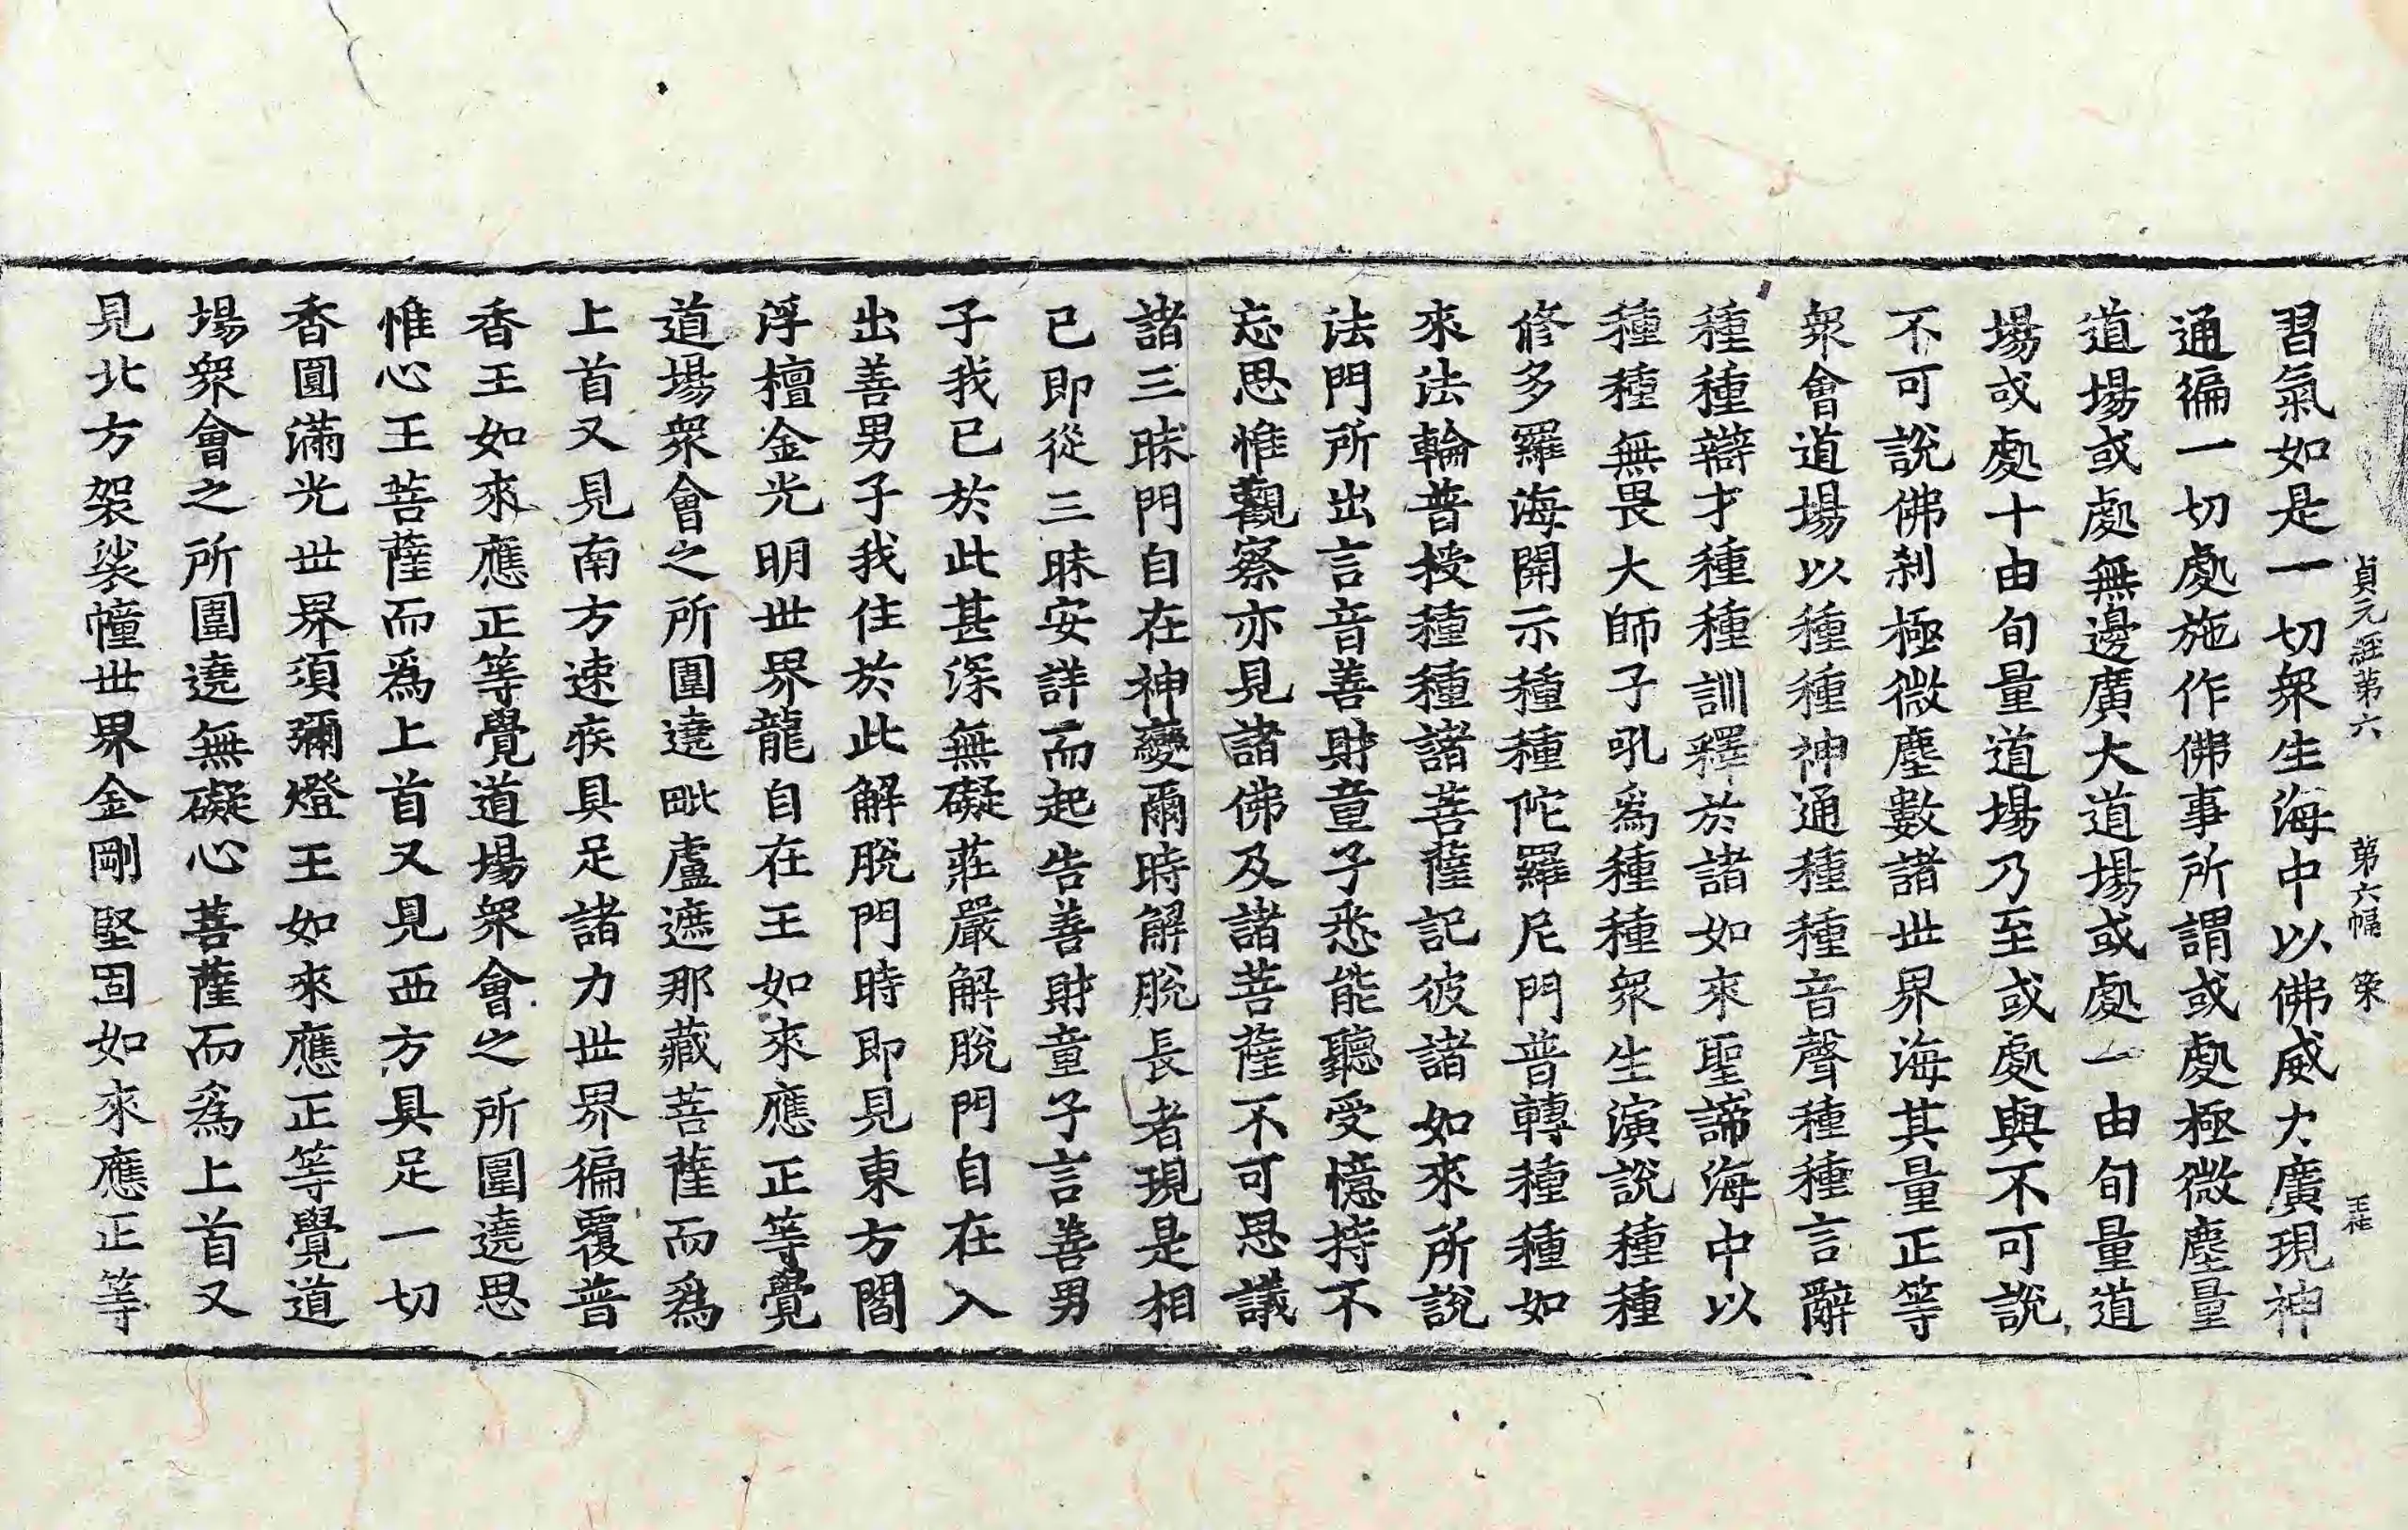 貞元經第六 第六幅 策
習氣如是一切衆生海中以佛威力廣現神
通徧一切處施作佛事所謂或處極微塵量
道場或處無邊廣大道場或處一由旬量道
場或處十由旬量道場乃至或處與不可說
不可說佛刹極微塵數諸世界海其量正等
衆會道場以種種神通種種音聲種種言辭
種種辯才種種訓釋於諸如來聖諦海中以
種種無畏大師子吼爲種種衆生演說種種
修多羅海開示種種陀羅尼門普轉種種如
來法輪普授種種諸菩薩記彼諸如來所說
法門所出言音善財童子悉能聽受憶持不
忘思惟觀察亦見諸佛及諸菩薩不可思議
諸三昧門自在神變爾時解脫長者現是相
已即從三昧安詳而起告善財童子言善男
子我已於此甚深無礙莊嚴解脫門自在入
出善男子我住於此解脫門時即見東方閻
浮檀金光明世界龍自在王如來應正等覺
道場衆會之所圍遶毗盧遮那藏菩薩而爲
上首又見南方速疾具足諸力世界徧覆普
香王如來應正等覺道場衆會之所圍遶思
惟心王菩薩而爲上首又見西方具足一切
香圓滿光世界須彌燈王如來應正等覺道
場衆會之所圍遶無礙心菩薩而爲上首又
見北方袈裟幢世界金剛堅固如來應正等